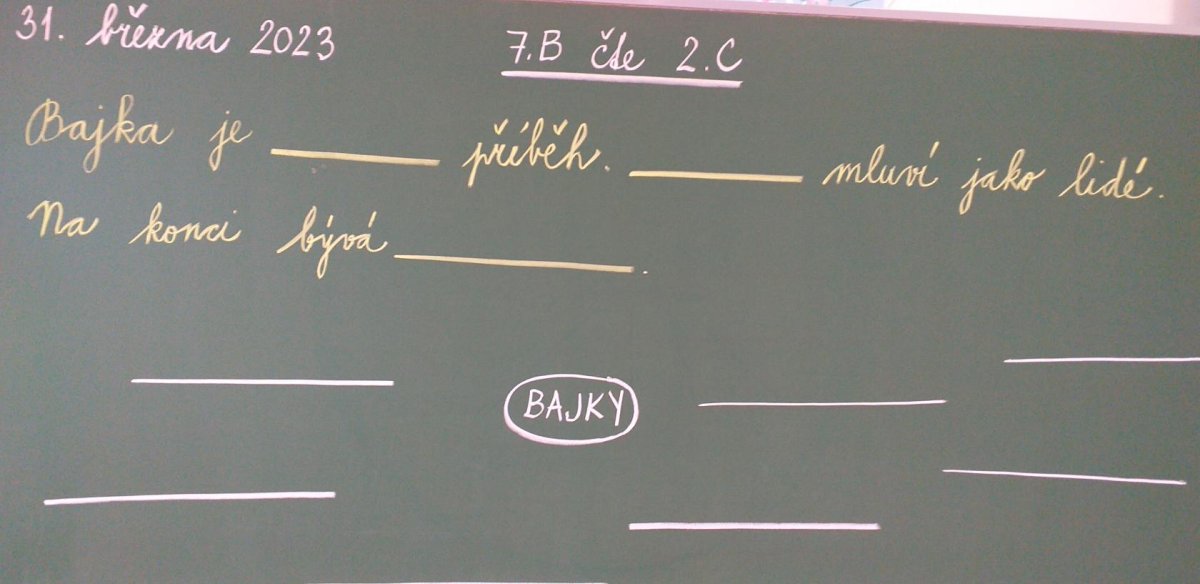 31. března 2023
7.B čte 2.C
Bajka je ______ příběh. ______ mluví jako lidé.
Na konci bývá ________.
BAJKY